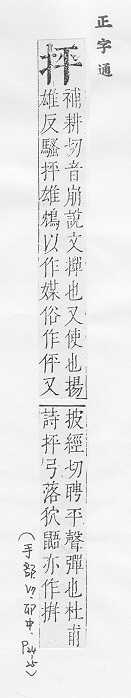 正字通
抨
補耕切音崩說文撣也又使也揚
雄反騷抨雄鴆以作媒俗作伻又
披經切聘平聲彈也杜甫
詩抨弓落狖鼯亦作拼